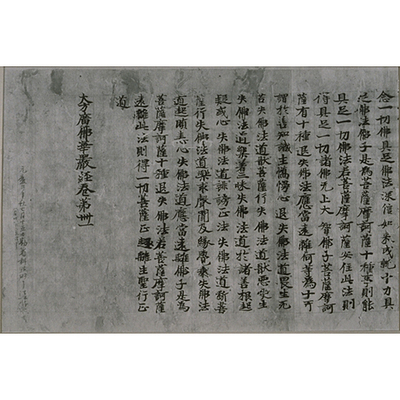 念一切佛具足佛法深信如來成就十力具
足佛法佛子是為菩薩摩訶薩十種則能
具足一切佛法若菩薩摩訶薩安住此法則
得具足一切諸佛无上大智佛子菩薩摩訶
薩有十種退失佛法應當遠離何等為十所
謂於善知識生憍慢心退失佛法道畏生死
苦失佛法道厭菩薩行失佛法道厭惡受生
失佛法道樂著三昧失佛法道於諸善根起
疑惑心失佛法道誹謗正法失佛法道斷菩
薩行失佛法道樂求聲聞及緣覺乘失佛法
道起瞋恚心失佛法道應當遠離佛子是為
菩薩摩訶薩十種退失佛法若菩薩摩訶薩
遠離此法則得一切菩薩正趣離生聖行正
道
大方廣佛華嚴經卷第卅一